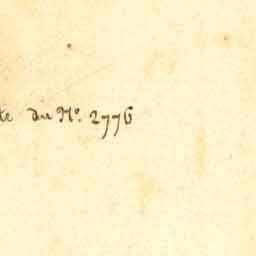 te du N.º 2776